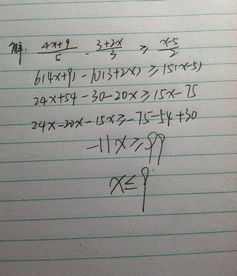 解: (4x+9)/5 - (3+2x)/3 ≥ (x-5)/2
6(4x+9) - 10(3+2x) ≥ 15(x-5)
24x+54-30-20x ≥ 15x-75
24x-20x-15x ≥ -75-54+30
-11x ≥ -99
x ≤ 9